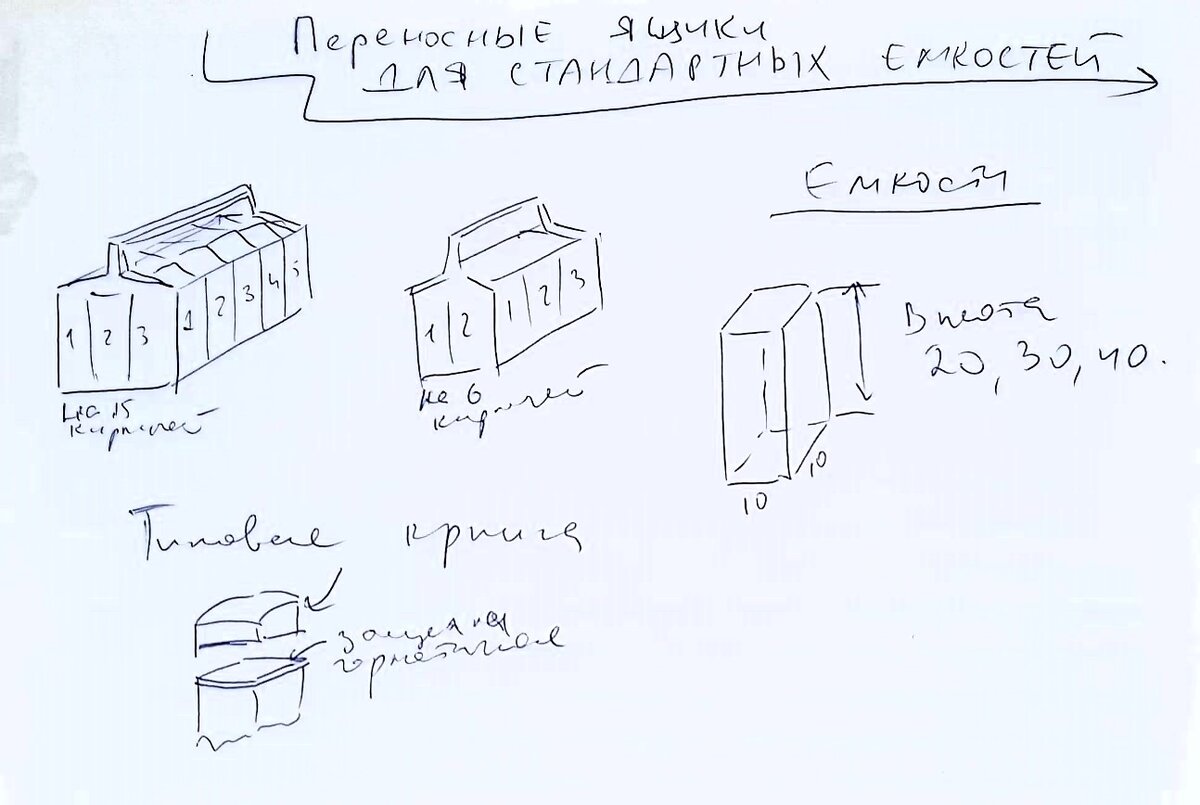 Переносные ящики
для стандартных емкостей
Емкости
1 2 3 1 2 3 4 5
1 2 1 2 3
на 15
кирпичей
на 6
кирпичей
Высота
20, 30, 40.
10
10
Типовая крышка
защелка
герметичная